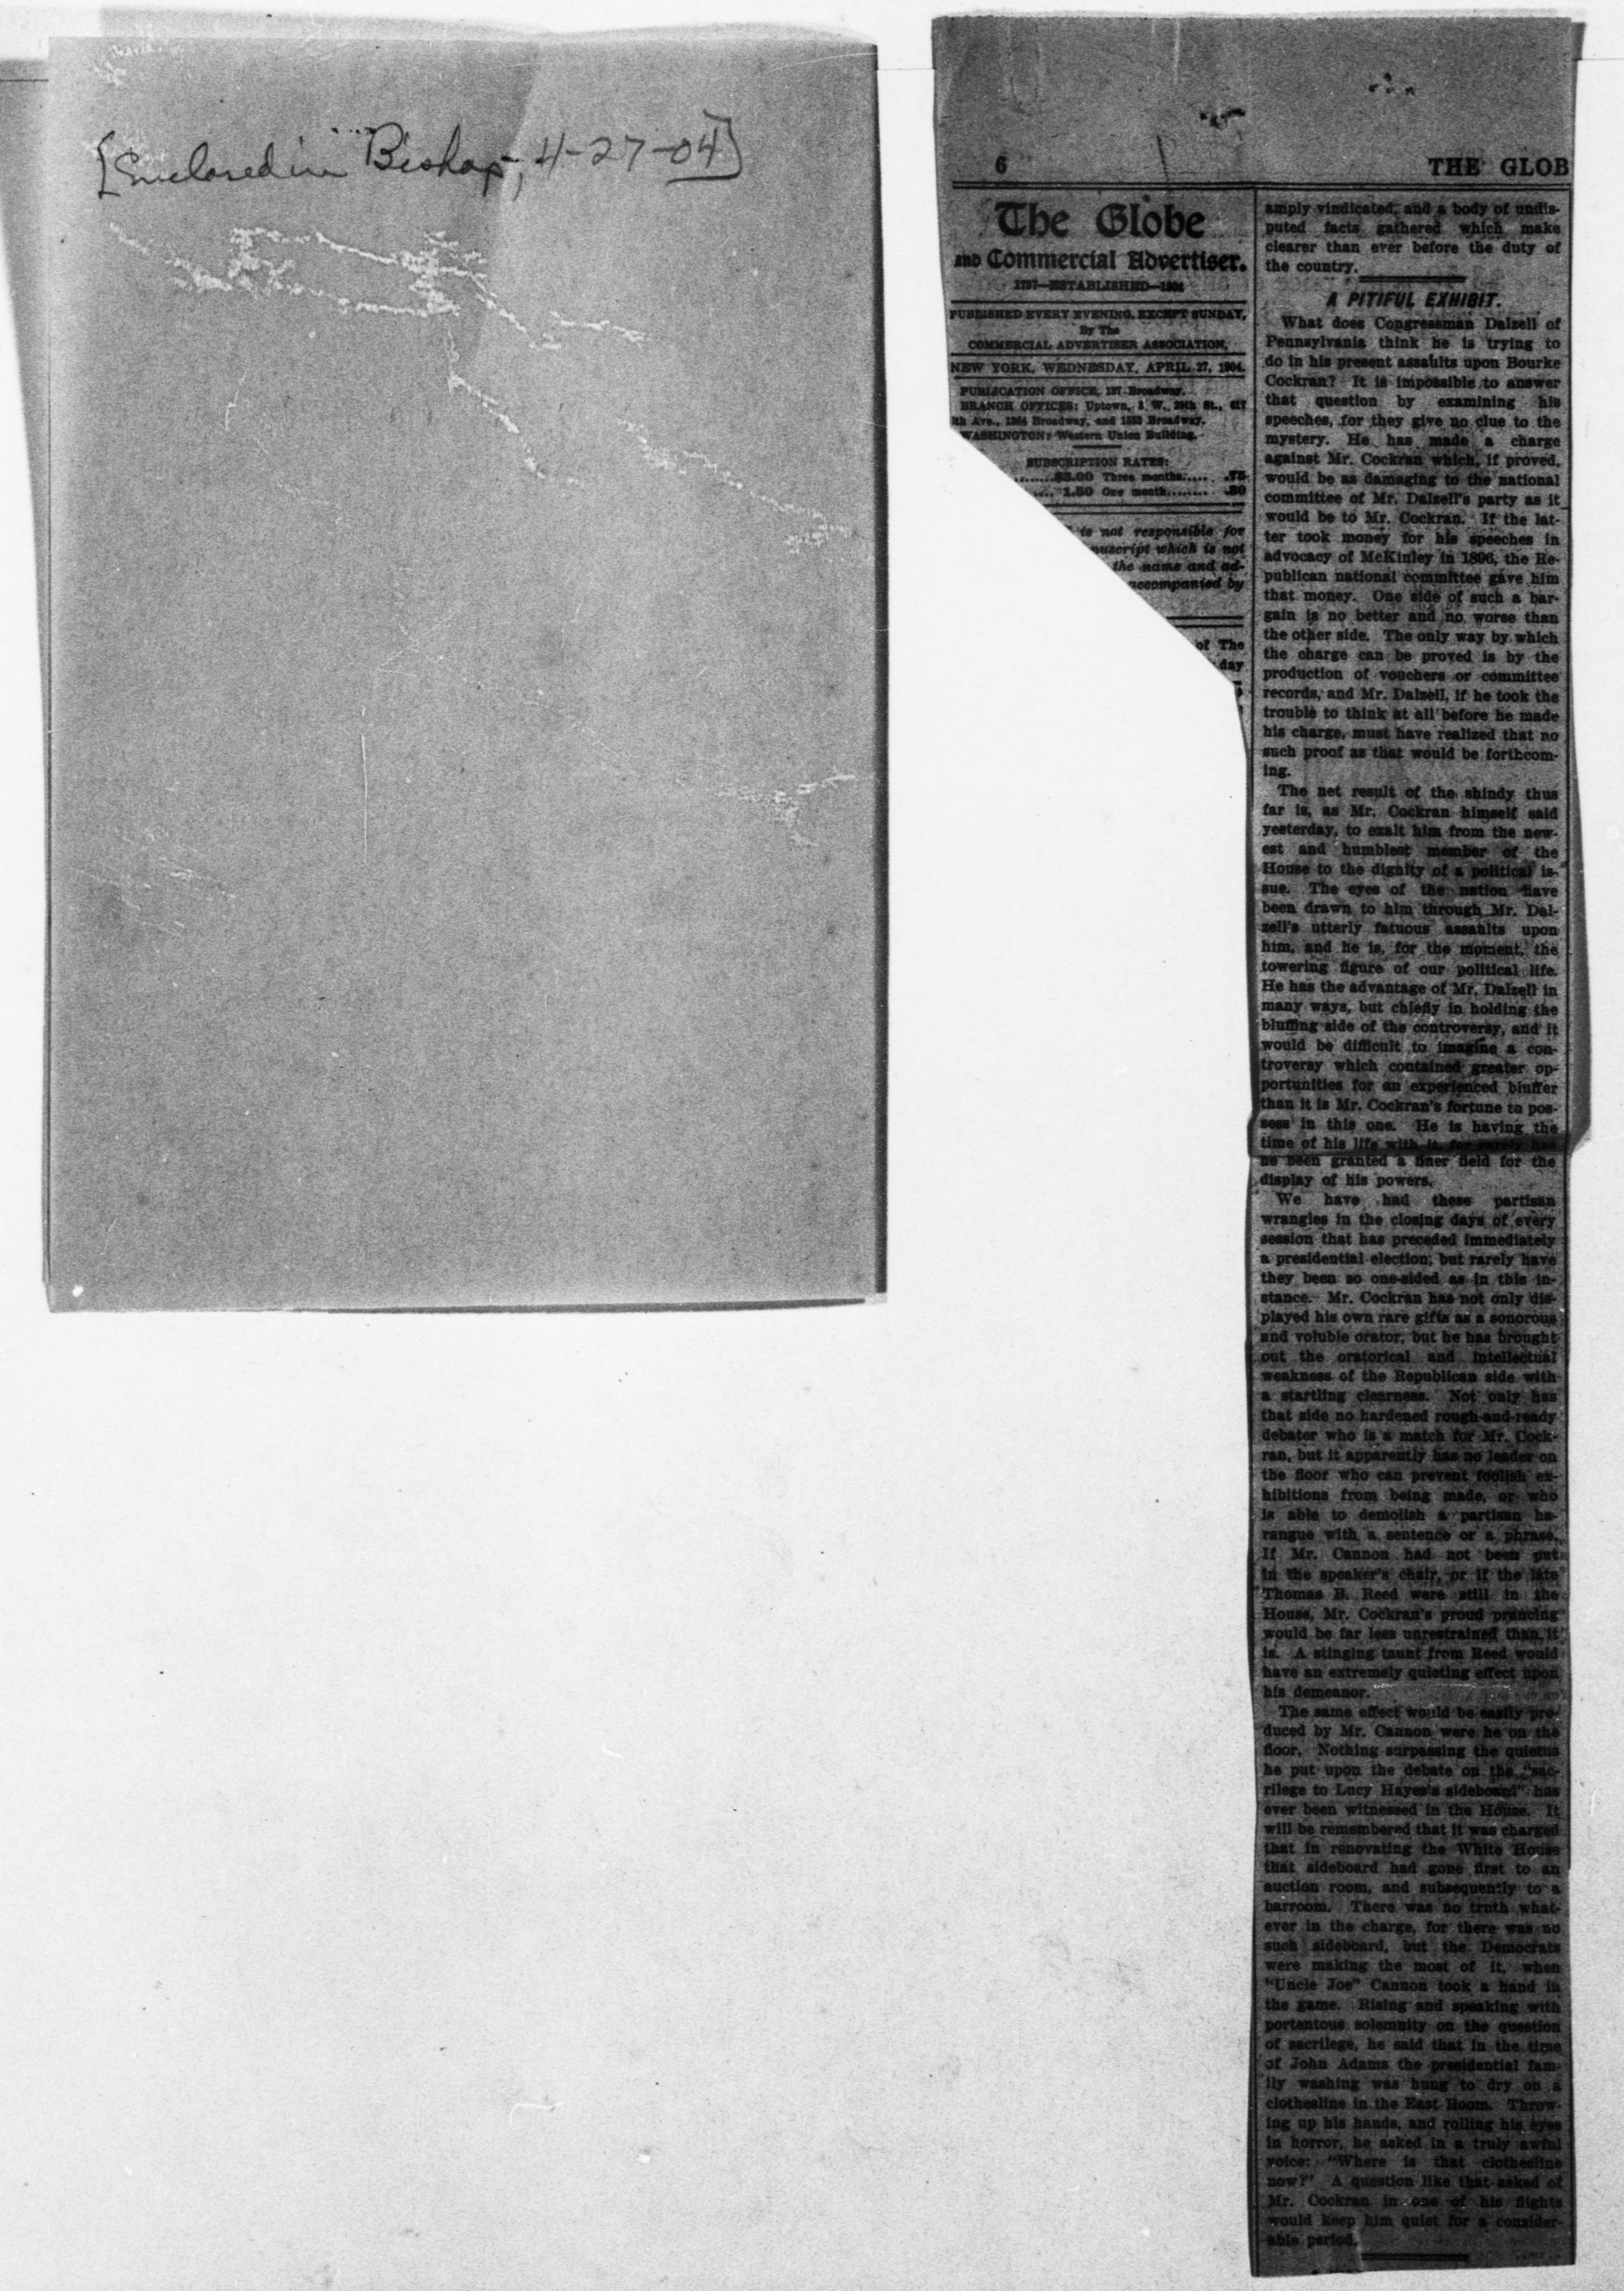 [Enclosed in Bishop, 4-27-04]
6
THE GLOB
The Globe
AND Commercial Advertiser.
1797—ESTABLISHED—1904
PUBLISHED EVERY EVENING, EXCEPT SUNDAY,
By The
COMMERCIAL ADVERTISER ASSOCIATION,
NEW YORK, WEDNESDAY, APRIL 27, 1904.
PUBLICATION OFFICE, 187 Broadway.
BRANCH OFFICES: Uptown, W. St., 617
Ave., 1364 Broadway, and Broadway.
WASHINGTON: Western Union Building.
SUBSCRIPTION RATES:
........$3.00 Three months..... .75
.... 1.50 One month........ .30
is not responsible for
nuscript which is not
the name and ad-
accompanied by
of The
day
amply vindicated, and a body of undis-
puted facts gathered which make
clearer than ever before the duty of
the country.
A PITIFUL EXHIBIT.
What does Congressman Dalzell of
Pennsylvania think he is trying to
do in his present assaults upon Bourke
Cockran? It is impossible to answer
that question by examining his
speeches, for they give no clue to the
mystery. He has made a charge
against Mr. Cockran which, if proved,
would be as damaging to the national
committee of Mr. Dalzell's party as it
would be to Mr. Cockran. If the lat-
ter took money for his speeches in
advocacy of McKinley in 1896, the Re-
publican national committee gave him
that money. One side of such a bar-
gain is no better and no worse than
the other side. The only way by which
the charge can be proved is by the
production of vouchers or committee
records, and Mr. Dalzell, if he took the
trouble to think at all before he made
his charge, must have realized that no
such proof as that would be forthcom-
ing.
The net result of the shindy thus
far is, as Mr. Cockran himself said
yesterday, to exalt him from the new-
est and humblest member of the
House to the dignity of a political is-
sue. The eyes of the nation have
been drawn to him through Mr. Dal-
zell's utterly fatuous assaults upon
him, and he is, for the moment, the
towering figure of our political life.
He has the advantage of Mr. Dalzell in
many ways, but chiefly in holding the
bluffing side of the controversy, and it
would be difficult to imagine a con-
troversy which contained greater op-
portunities for an experienced bluffer
than it is Mr. Cockran's fortune to pos-
sess in this one. He is having the
time of his life with it, for rarely has
he been granted a finer field for the
display of his powers.
We have had these partisan
wrangles in the closing days of every
session that has preceded immediately
a presidential election, but rarely have
they been so one-sided as in this in-
stance. Mr. Cockran has not only dis-
played his own rare gifts as a sonorous
and voluble orator, but he has brought
out the oratorical and intellectual
weakness of the Republican side with
a startling clearness. Not only has
that side no hardened rough-and-ready
debater who is a match for Mr. Cock-
ran, but it apparently has no leader on
the floor who can prevent foolish ex-
hibitions from being made, or who
is able to demolish a partisan ha-
rangue with a sentence or a phrase.
If Mr. Cannon had not been put
in the speaker's chair, or if the late
Thomas B. Reed were still in the
House, Mr. Cockran's proud prancing
would be far less unrestrained than it
is. A stinging taunt from Reed would
have an extremely quieting effect upon
his demeanor.
The same effect would be easily pro-
duced by Mr. Cannon were he on the
floor. Nothing surpassing the quietus
he put upon the debate on the "sac-
rilege to Lucy Hayes's sideboard" has
ever been witnessed in the House. It
will be remembered that it was charged
that in renovating the White House
that sideboard had gone first to an
auction room, and subsequently to a
barroom. There was no truth what-
ever in the charge, for there was no
such sideboard, but the Democrats
were making the most of it, when
"Uncle Joe" Cannon took a hand in
the game. Rising and speaking with
portentous solemnity on the question
of sacrilege, he said that in the time
of John Adams the presidential fam-
ily washing was hung to dry on a
clothesline in the East Room. Throw-
ing up his hands, and rolling his eyes
in horror, he asked in a truly awful
voice: "Where is that clothesline
now?" A question like that asked of
Mr. Cockran in one of his flights
would keep him quiet for a consider-
able period.